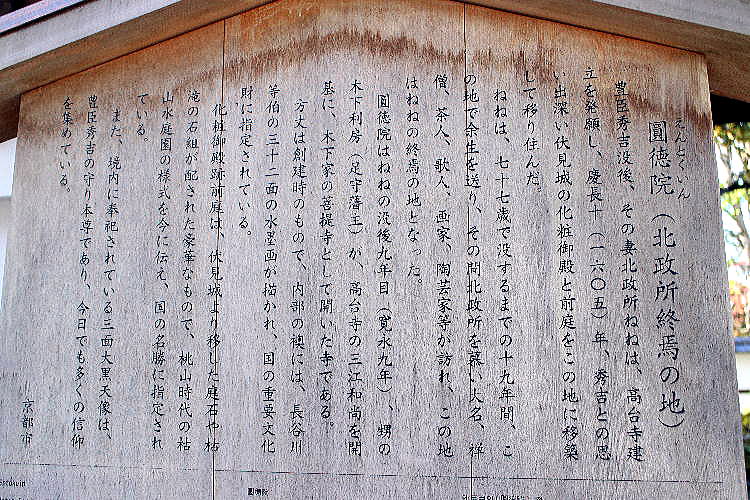 えんとくいん
圓徳院(北政所終焉の地)
豊臣秀吉没後、その妻北政所ねねは、高台寺建
立を発願し、慶長十(一六〇五)年、秀吉との思
い出深い伏見城の化粧御殿と前庭をこの地に移築
して移り住んだ。
ねねは、七十七歳で没するまでの十九年間、こ
の地で余生を送り、その間北政所を慕い大名、禅
僧、茶人、歌人、画家、陶芸家等が訪れ、この地
はねねの終焉の地となった。
圓徳院はねねの没後九年目(寛永九年)、甥の
木下利房(足守藩主)が、高台寺の三江和尚を開
基に、木下家の菩提寺として開いた寺である。
方丈は創建時のもので、内部の襖には、長谷川
等伯の三十二面の水墨画が描かれ、国の重要文化
財に指定されている。
化粧御殿跡前庭は、伏見城より移した庭石や枯
滝の石組が配された豪華なもので、桃山時代の枯
山水庭園の様式を今に伝え、国の名勝に指定され
ている。
また、境内に奉祀されている三面大黒天像は、
豊臣秀吉の守り本尊であり、今日でも多くの信仰
を集めている。
京都市
圓德院